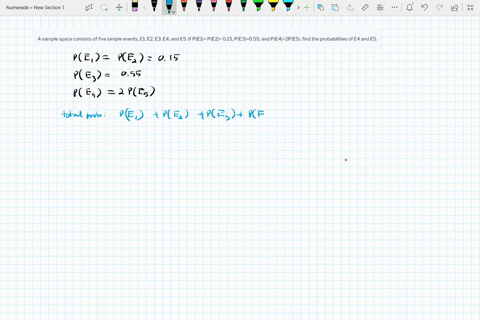 Numerade » New Section 1
A sample space consists of five simple events, E1, E2, E3, E4, and E5. If P(E1)= P(E2)= 0.15, P(E3)=0.55, and P(E4)=2P(E5), find the probabilities of E4 and E5.
P(E₁) = P(E₂) = 0.15
P(E₃) = 0.55
P(E₄) = 2 P(E₅)
total prob: P(E₁) + P(E₂) + P(E₃) + P(E